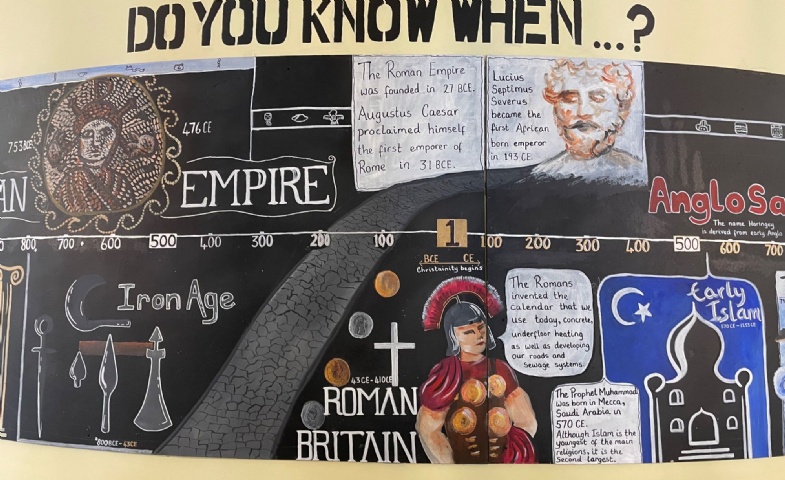 DO YOU KNOW WHEN ...?
753 BCE
476 CE
AN EMPIRE
The Roman Empire
was founded in 27 BCE.
Augustus Caesar
proclaimed himself
the first emporer of
Rome in 31 BCE.
Lucius
Septimus
Severus
became the
first African
born emperor
in 193 CE.
Anglo Sa
The name Haringey
is derived from early Anglo
800 700 600 500 400 300 200 100 1 100 200 300 400 500 600 700
BCE CE
Christainity begins
Iron Age
800BCE - 43CE
43 CE - 410CE
ROMAN
BRITAIN
The Romans
invented the
calendar that we
use today, concrete,
underfloor heating
as well as developing
our roads and
sewage systems.
Early
Islam
The Prophet Muhammad
was born in Mecca,
Saudi Arabia, in
570 CE.
Although Islam is the
youngest of the main
religions, it is the
second largest.